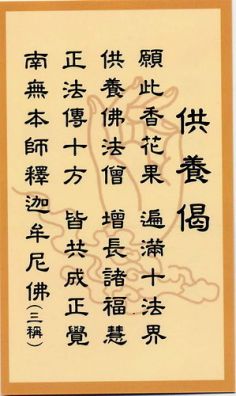 供養偈
願此香花果 遍滿十法界
供養佛法僧 增長諸福慧
正法傳十方 皆共成正覺
南無本師釋迦牟尼佛(三稱)